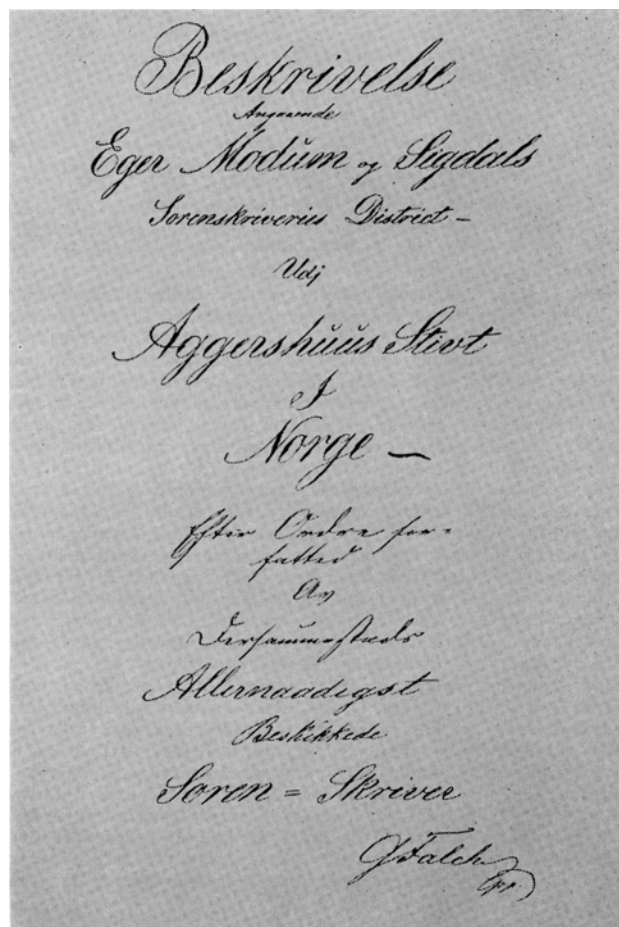 Beskrivelse
Angaaende
Eger Modum og Sigdals
Sorenskriveries District –
Udj
Aggershuus Stivt
I
Norge –
Efter Ordre for=
fatted
Av
Dersammesteds
Allernaadigst
Beskikkede
Soren = Skriver
G Falch